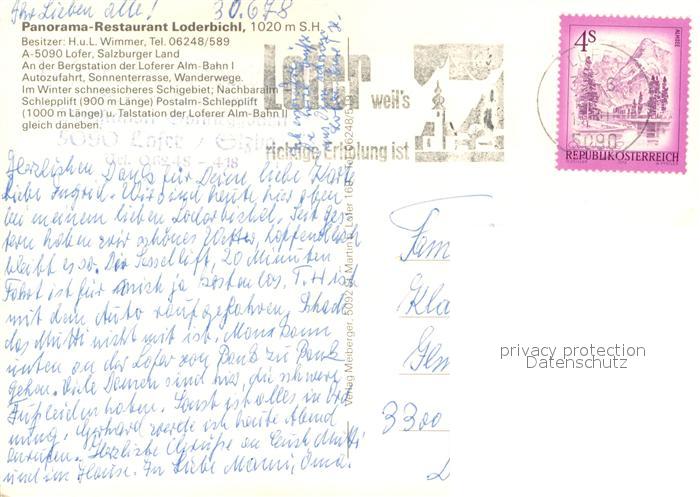 Ihr Lieben alle! 30.6.78
Panorama-Restaurant Loderbichl, 1020 m S.H.
Besitzer: H.u.L. Wimmer, Tel. 06248/589
A-5090 Lofer, Salzburger Land
An der Bergstation der Loferer Alm-Bahn I
Autozufahrt, Sonnenterrasse, Wanderwege.
Im Winter schneesicheres Schigebiet; Nachbaralm
Schlepplift (900 m Länge) Postalm-Schlepplift
(1000 m Länge) u. Talstation der Loferer Alm-Bahn II
gleich daneben.
5090 Lofer
Tel. 06248 - 418
Lofer
weil's
richtige Erholung ist
4S
ALMSEE
REPUBLIK ÖSTERREICH
5090
Herzlichen Dank für Deine liebe Karte
liebe Ingrid. Wir sind heute hier oben
bei meinem lieben Loderbichel. Seit ges
tern haben wir schönes Wetter, hoffentlich
bleibt es so. Der Sessellift, 20 Minuten
Fahrt ist für mich ja kostenlos. T. H ist
mit dem Auto raufgefahren. Schade
das Mutti nicht mit ist. Man kann
unten an der Lofer von Bank zu Bank
gehen. Viele Damen sind hier, die schwere
Fußleiden haben. Sonst ist alles in Ord
nung. Gerhard werde ich heute Abend
anrufen. Herzliche Grüße an Euch
und im Hause. In Liebe Mami, Oma.
Verlag Meiberger, 5092 St. Martin b. Lofer
Fam
Kla
3300
privacy protection
Datenschutz